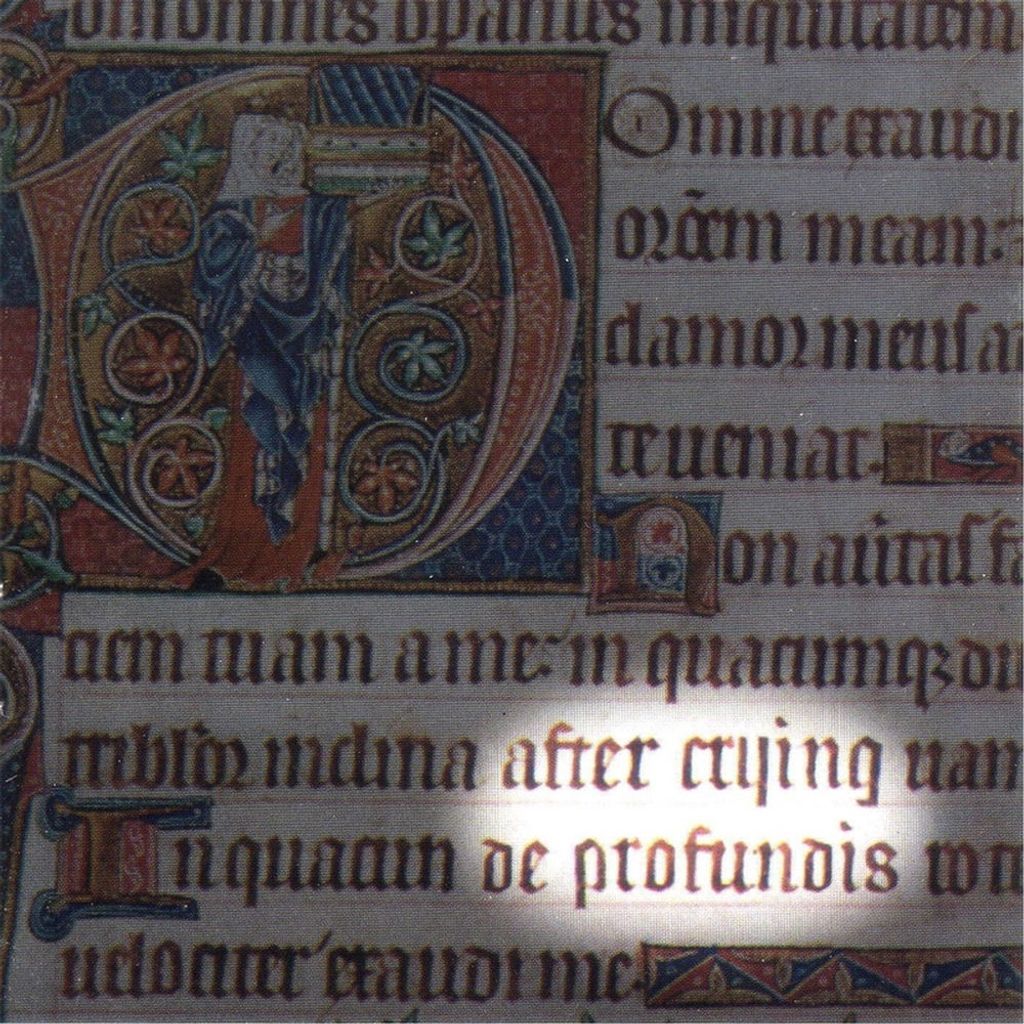 omnes operarius iniquitatem
Omine exaudi
orõem meam:
clamor meus ad
te ueniat.
Non auitas fa
ciem tuam a me: in quacumqꝫ di
tribłor inclina after crying uam
In quacun de profundis uoca
uelociter exaudi me.